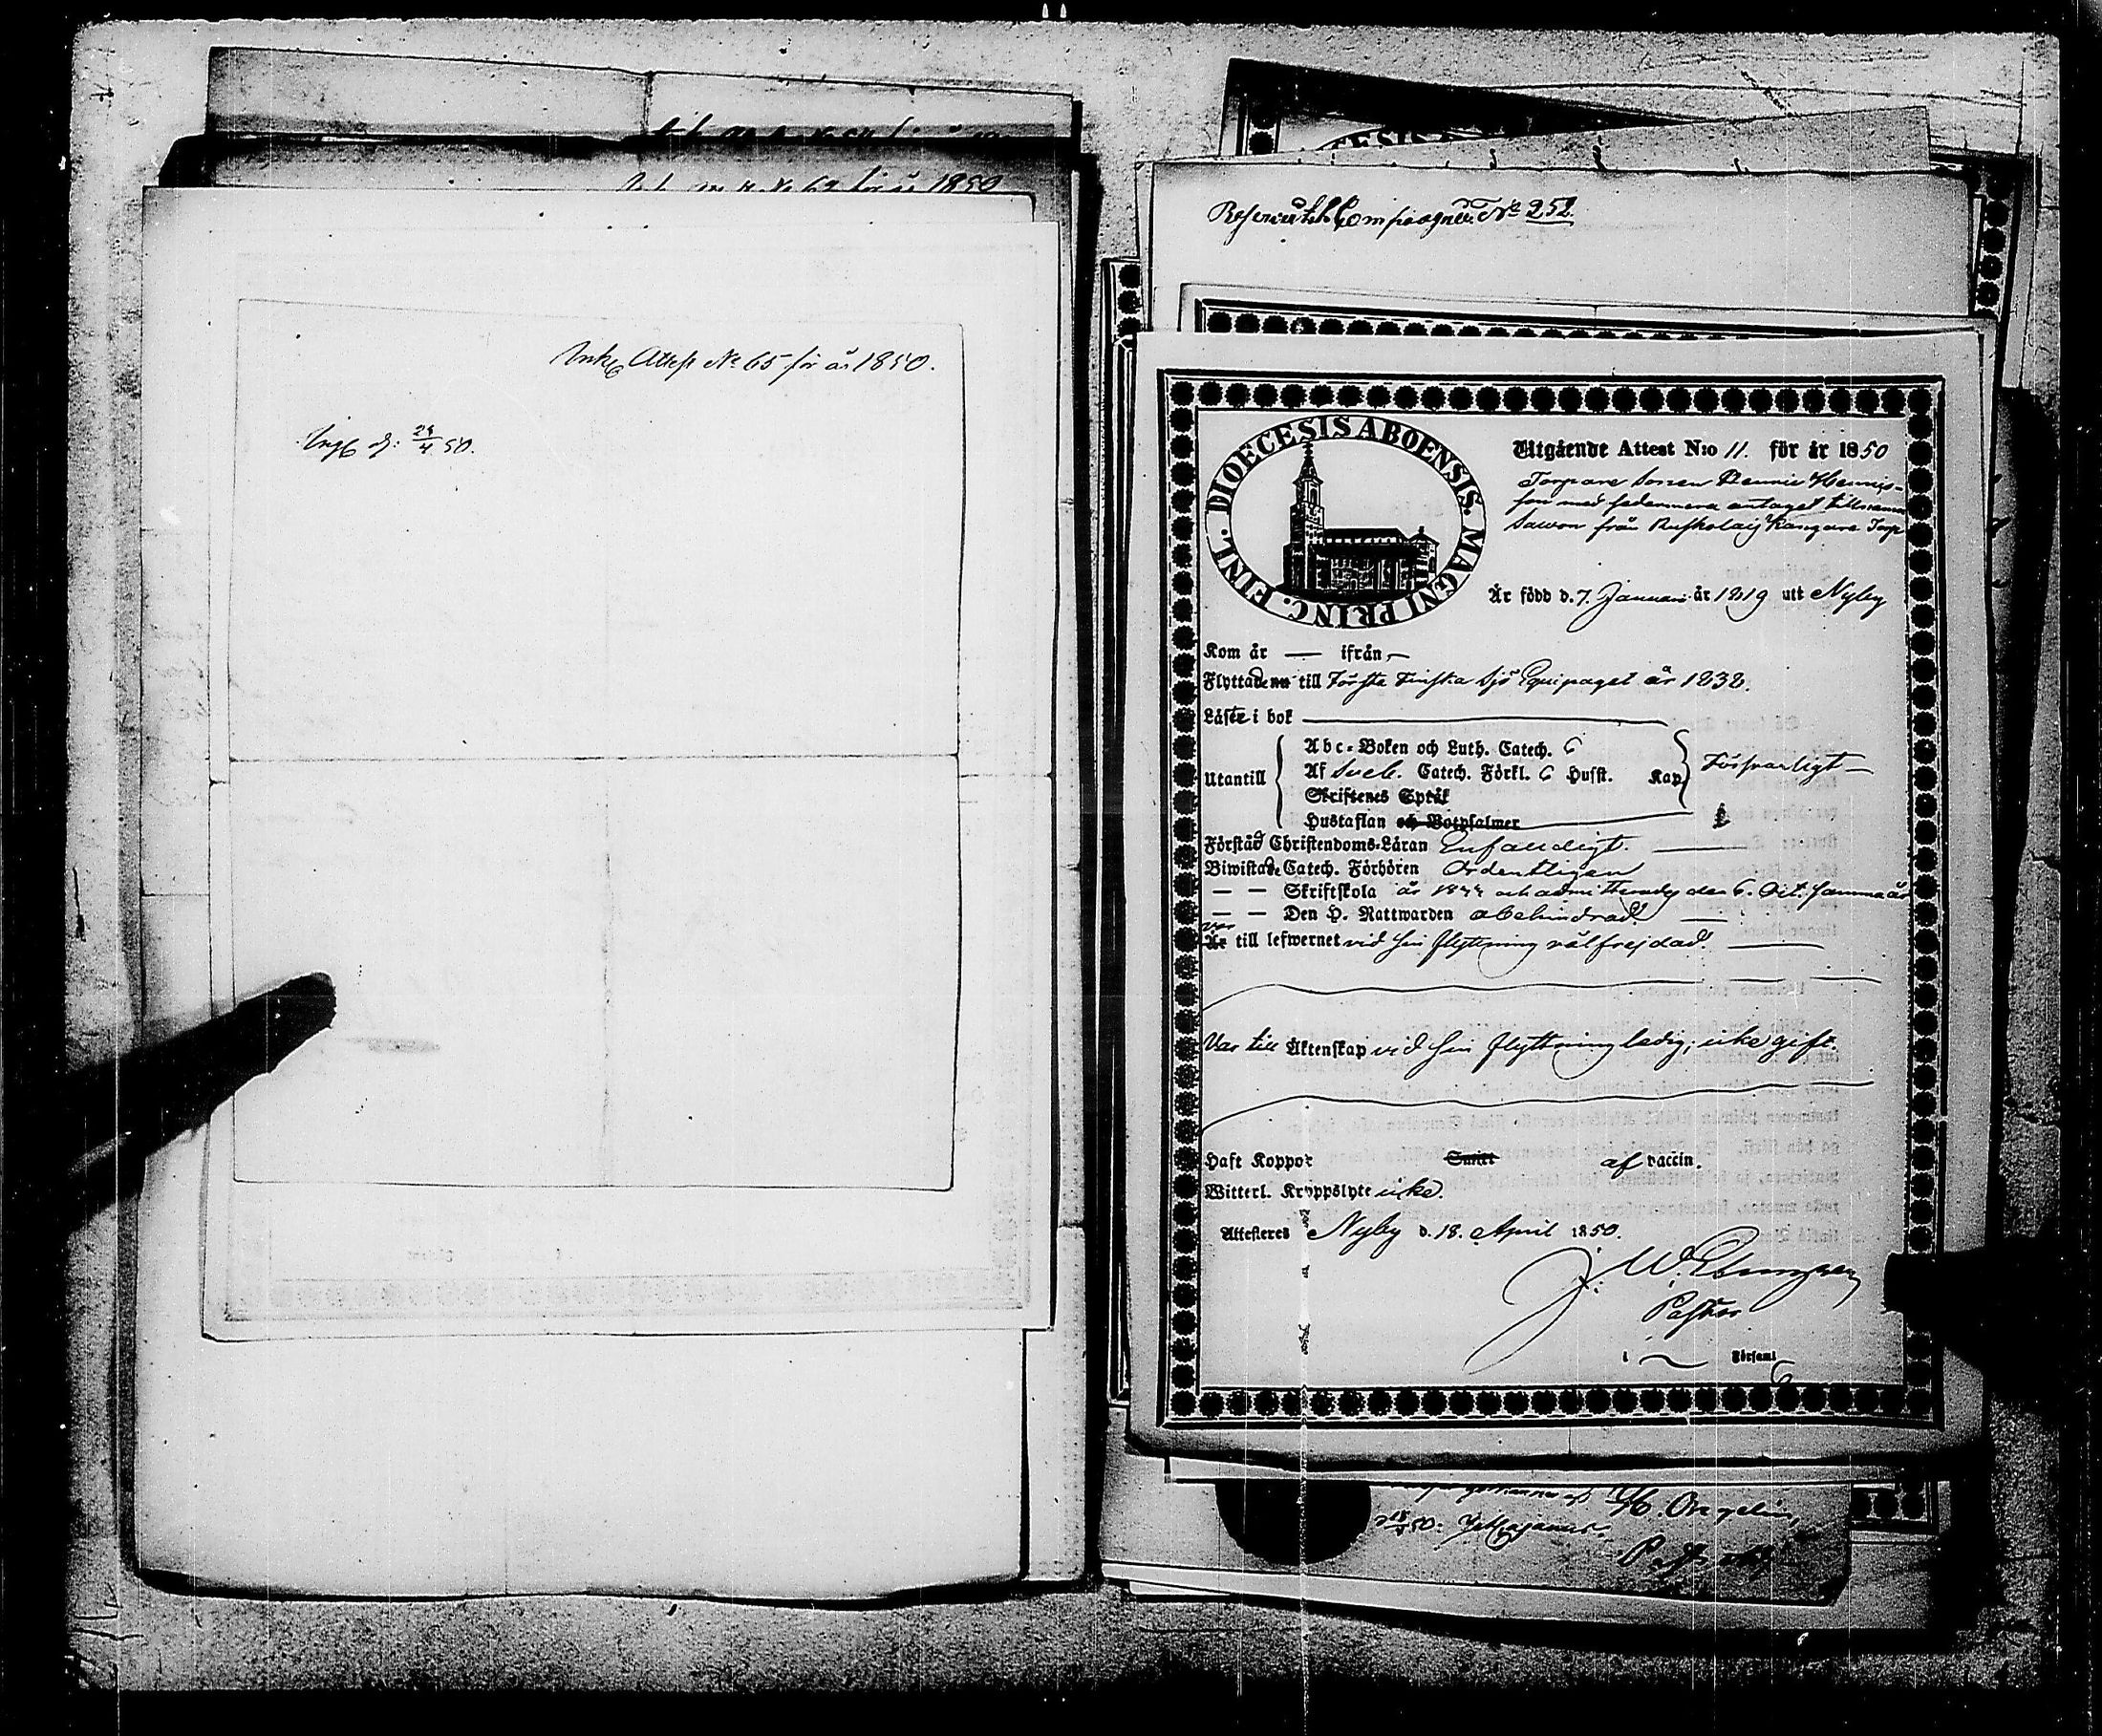 för år 1850
Ink. Attest No 65 för år 1850.
Ing. d: 24/4 50.
Compagniet No 252.
DIOECESIS ABOENSIS. MAGNI PRINC. FINL.
Utgående Attest N:o 11. för år 1850
Torpare Sonen Hennis-
son med sedermera antaget tillnamn
från Kangare Torp
Är född d. 7. Januari år 1819 uti Nyby
Kom år — ifrån —
Flyttade till Första Finska Sjö Equipaget år 1838.
Läste i bok
Utantill
Abc-Boken och Luth. Catech.
Af Sveb. Catech. Förkl. Husst. Kap. Försvarligt —
Skriftenes Språk
Hustaflan och Botpsalmer
Förstår Christendoms-Läran Enfaldigt.
Biwistade Catech. Förhören Ordentligen
— — Skriftskola år och admitterades den 6. Oct. samma år
— — Den H. Nattwarden obehindrad —
var
Är till lefwernet vid sin flyttning välfrejdad. —
Var till Äktenskap vid sin flyttning ledig; icke gift.
Haft Koppor Smitt af vaccin.
Witterl. Kroppslyte icke.
Attesteres Nyby d. 18. April 1850.
J. W.
Pastor
i — Församl